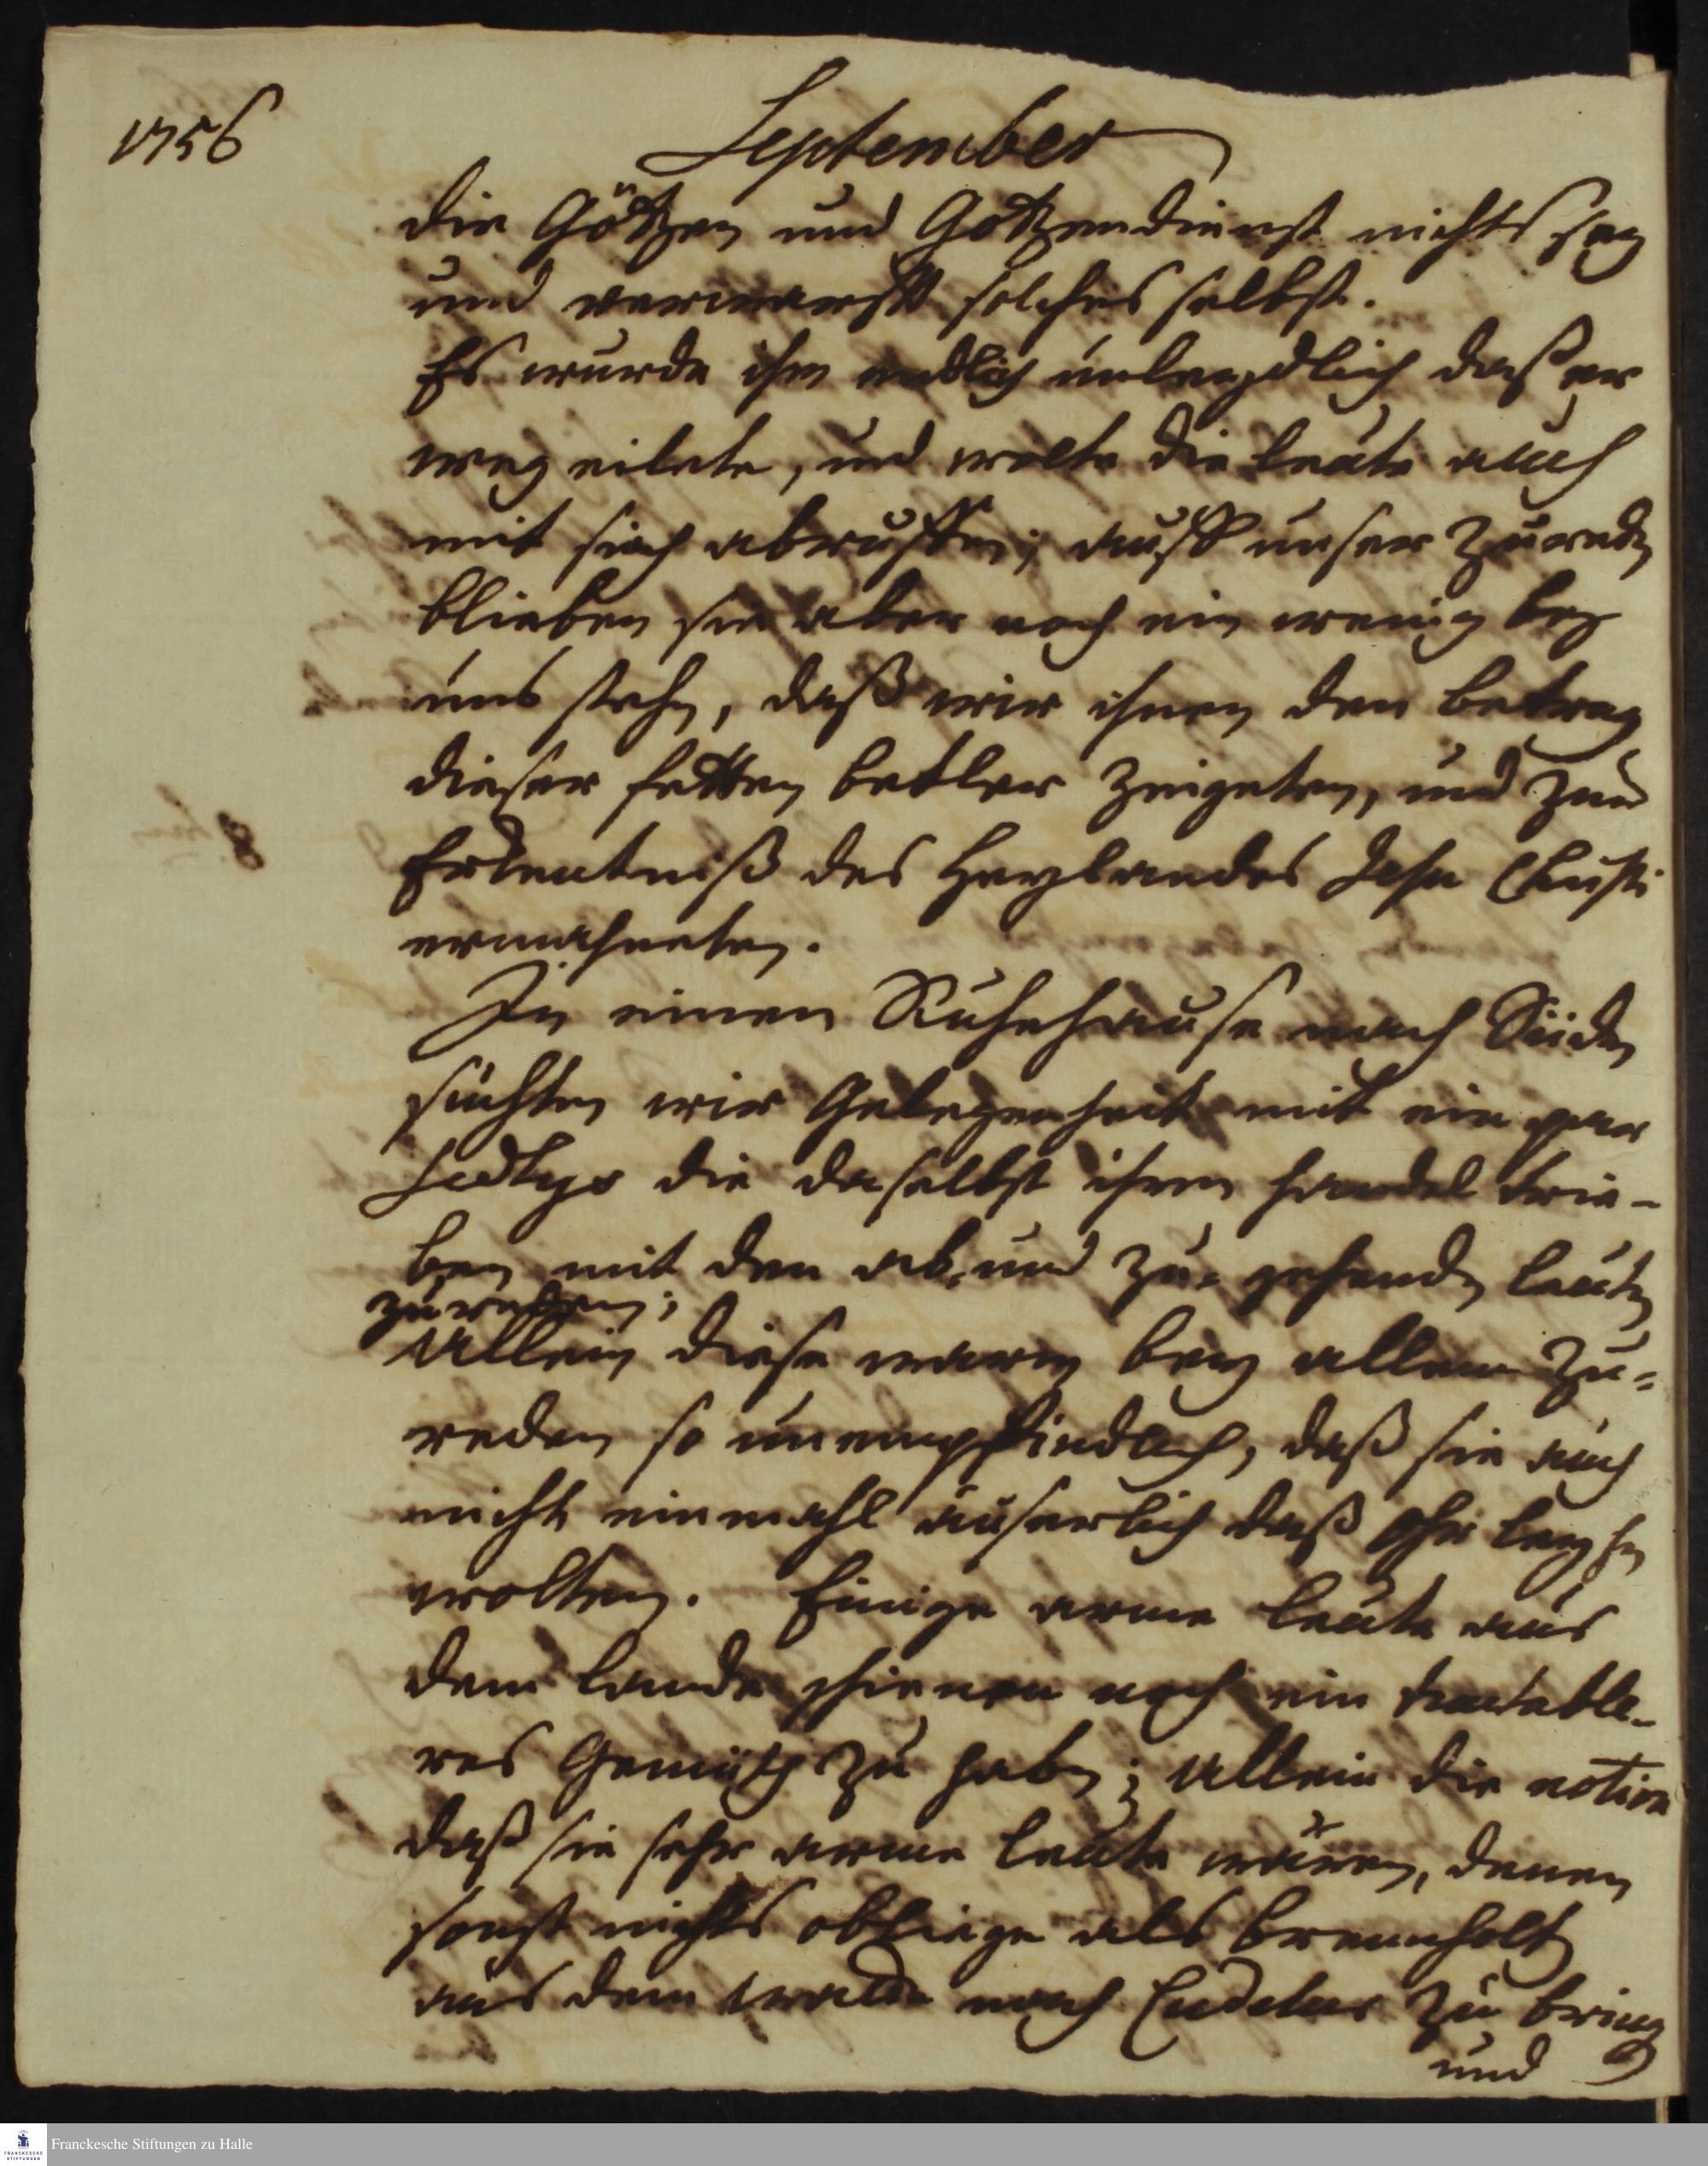 1756
September
die Götzen und Gotzendienst nichts sey
und verwarff solches selbst.
Es wurde ihm endlich unleydlich daß er
weg eilete, und wolte die Leute auch
mit sich abruffen; auff unser Zureden
blieben sie aber noch ein wenig bey
uns stehn, daß wir ihnen den Betrug
dieser fetten Betler zeigeten, und zur
Erkentniß des Heylandes Jesu Christi
ermahneten.
In einem Ruhehause nach Süden
suchten wir Gelegenheit mit ein paar
Sedtys die daselbst ihren Handel trie-
ben mit den ab- und zu- gehenden Leuten
zu reden;
Allein diese waren bey allem Zu-
reden so unempfindlich, daß sie auch
nicht einmahl äuserlich daß Ohr leyhen
wolten. Einige arme Leute aus
dem Lande schienen noch ein tractable-
res Gemüth zu haben; Allein die notion
daß sie sehr arme Leute wären, denen
sonst nichts obliege als Brennholtz
aus dem Walde nach Cudelur zu bringen
und
Franckesche Stiftungen zu Halle
FRANCKESCHE STIFTUNGEN